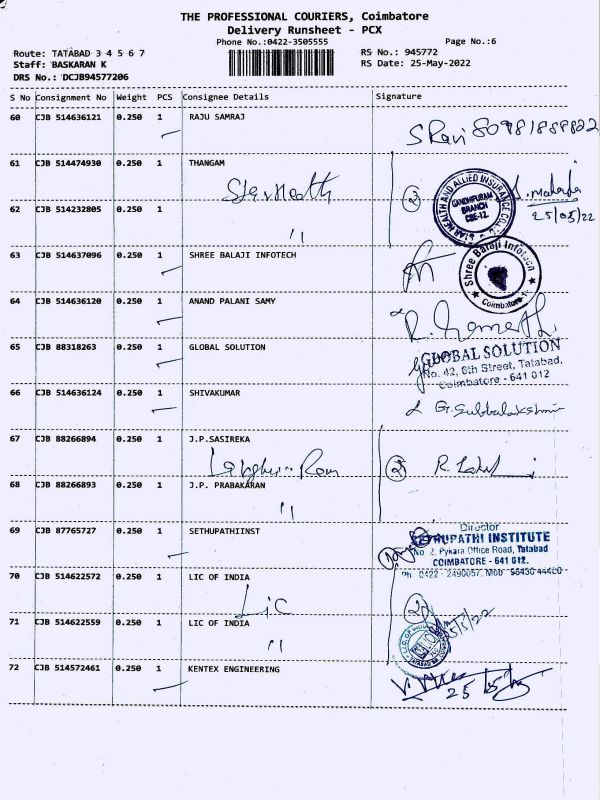 THE PROFESSIONAL COURIERS, Coimbatore
Delivery Runsheet - PCX
Phone No.:0422-3505555 Page No.:6
Route: TATABAD 3 4 5 6 7 RS No.: 945772
Staff: BASKARAN K RS Date: 25-May-2022
DRS No.: DCJB94577206
S No Consignment No Weight PCS Consignee Details Signature
60 CJB 514636121 0.250 1 RAJU SAMRAJ
61 CJB 514474930 0.250 1 THANGAM
Star Health
25/05/22
GANDHIPURAM
BRANCH
CBE-12.
62 CJB 514232805 0.250 1
"
63 CJB 514637096 0.250 1 SHREE BALAJI INFOTECH
Shree Balaji Infotech
Coimbatore-12
64 CJB 514636120 0.250 1 ANAND PALANI SAMY
65 CJB 88318263 0.250 1 GLOBAL SOLUTION
GLOBAL SOLUTION
No. 42, 6th Street, Tatabad,
Coimbatore - 641 012
66 CJB 514636124 0.250 1 SHIVAKUMAR
G. Subbalakshmi
67 CJB 88266894 0.250 1 J.P.SASIREKA
2
68 CJB 88266893 0.250 1 J.P. PRABAKARAN
"
69 CJB 87765727 0.250 1 SETHUPATHIINST
Director
SETHUPATHI INSTITUTE
No 2, Pykara Office Road, Tatabad
COIMBATORE - 641 012.
70 CJB 514622572 0.250 1 LIC OF INDIA
LIC
71 CJB 514622559 0.250 1 LIC OF INDIA
"
72 CJB 514572461 0.250 1 KENTEX ENGINEERING